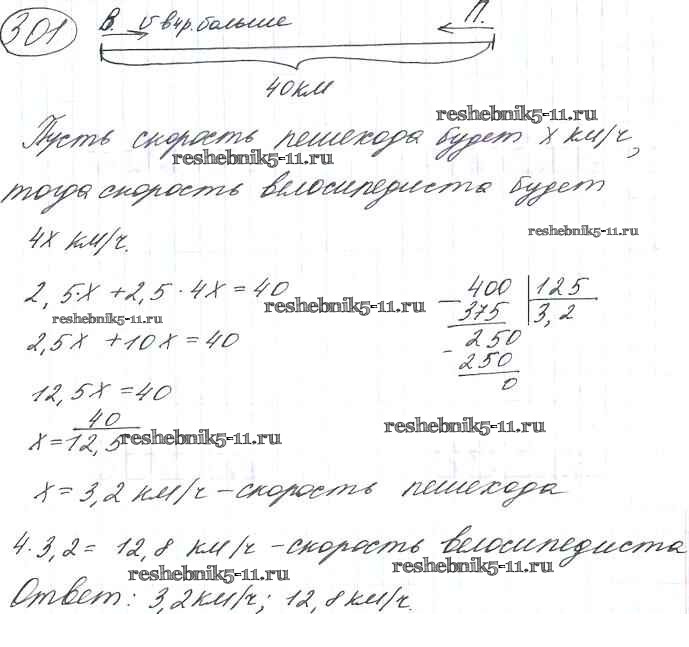 301 В. v в 4р. больше П.
40 км
reshebnik5-11.ru
Пусть скорость пешехода будет x км/ч,
reshebnik5-11.ru
тогда скорость велосипедиста будет
reshebnik5-11.ru
4x км/ч.
2,5·x + 2,5·4x = 40
reshebnik5-11.ru
reshebnik5-11.ru
2,5x + 10x = 40
400 | 125
- 375 | 3,2
250
- 250
0
12,5x = 40
x = 40/12,5
reshebnik5-11.ru
reshebnik5-11.ru
x = 3,2 км/ч – скорость пешехода
4·3,2 = 12,8 км/ч – скорость велосипедиста
reshebnik5-11.ru
reshebnik5-11.ru
Ответ: 3,2 км/ч; 12,8 км/ч.